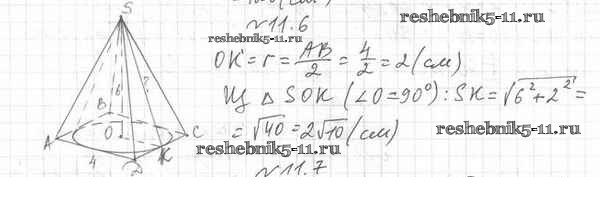 №11.6
reshebnik5-11.ru
reshebnik5-11.ru
OK = r = AB/2 = 4/2 = 2 (см)
Из △ SOK (∠O=90°): SK = √6²+2² =
= √40 = 2√10 (см)
reshebnik5-11.ru
reshebnik5-11.ru
№11.7
S
6
?
B
A
O
C
4
K